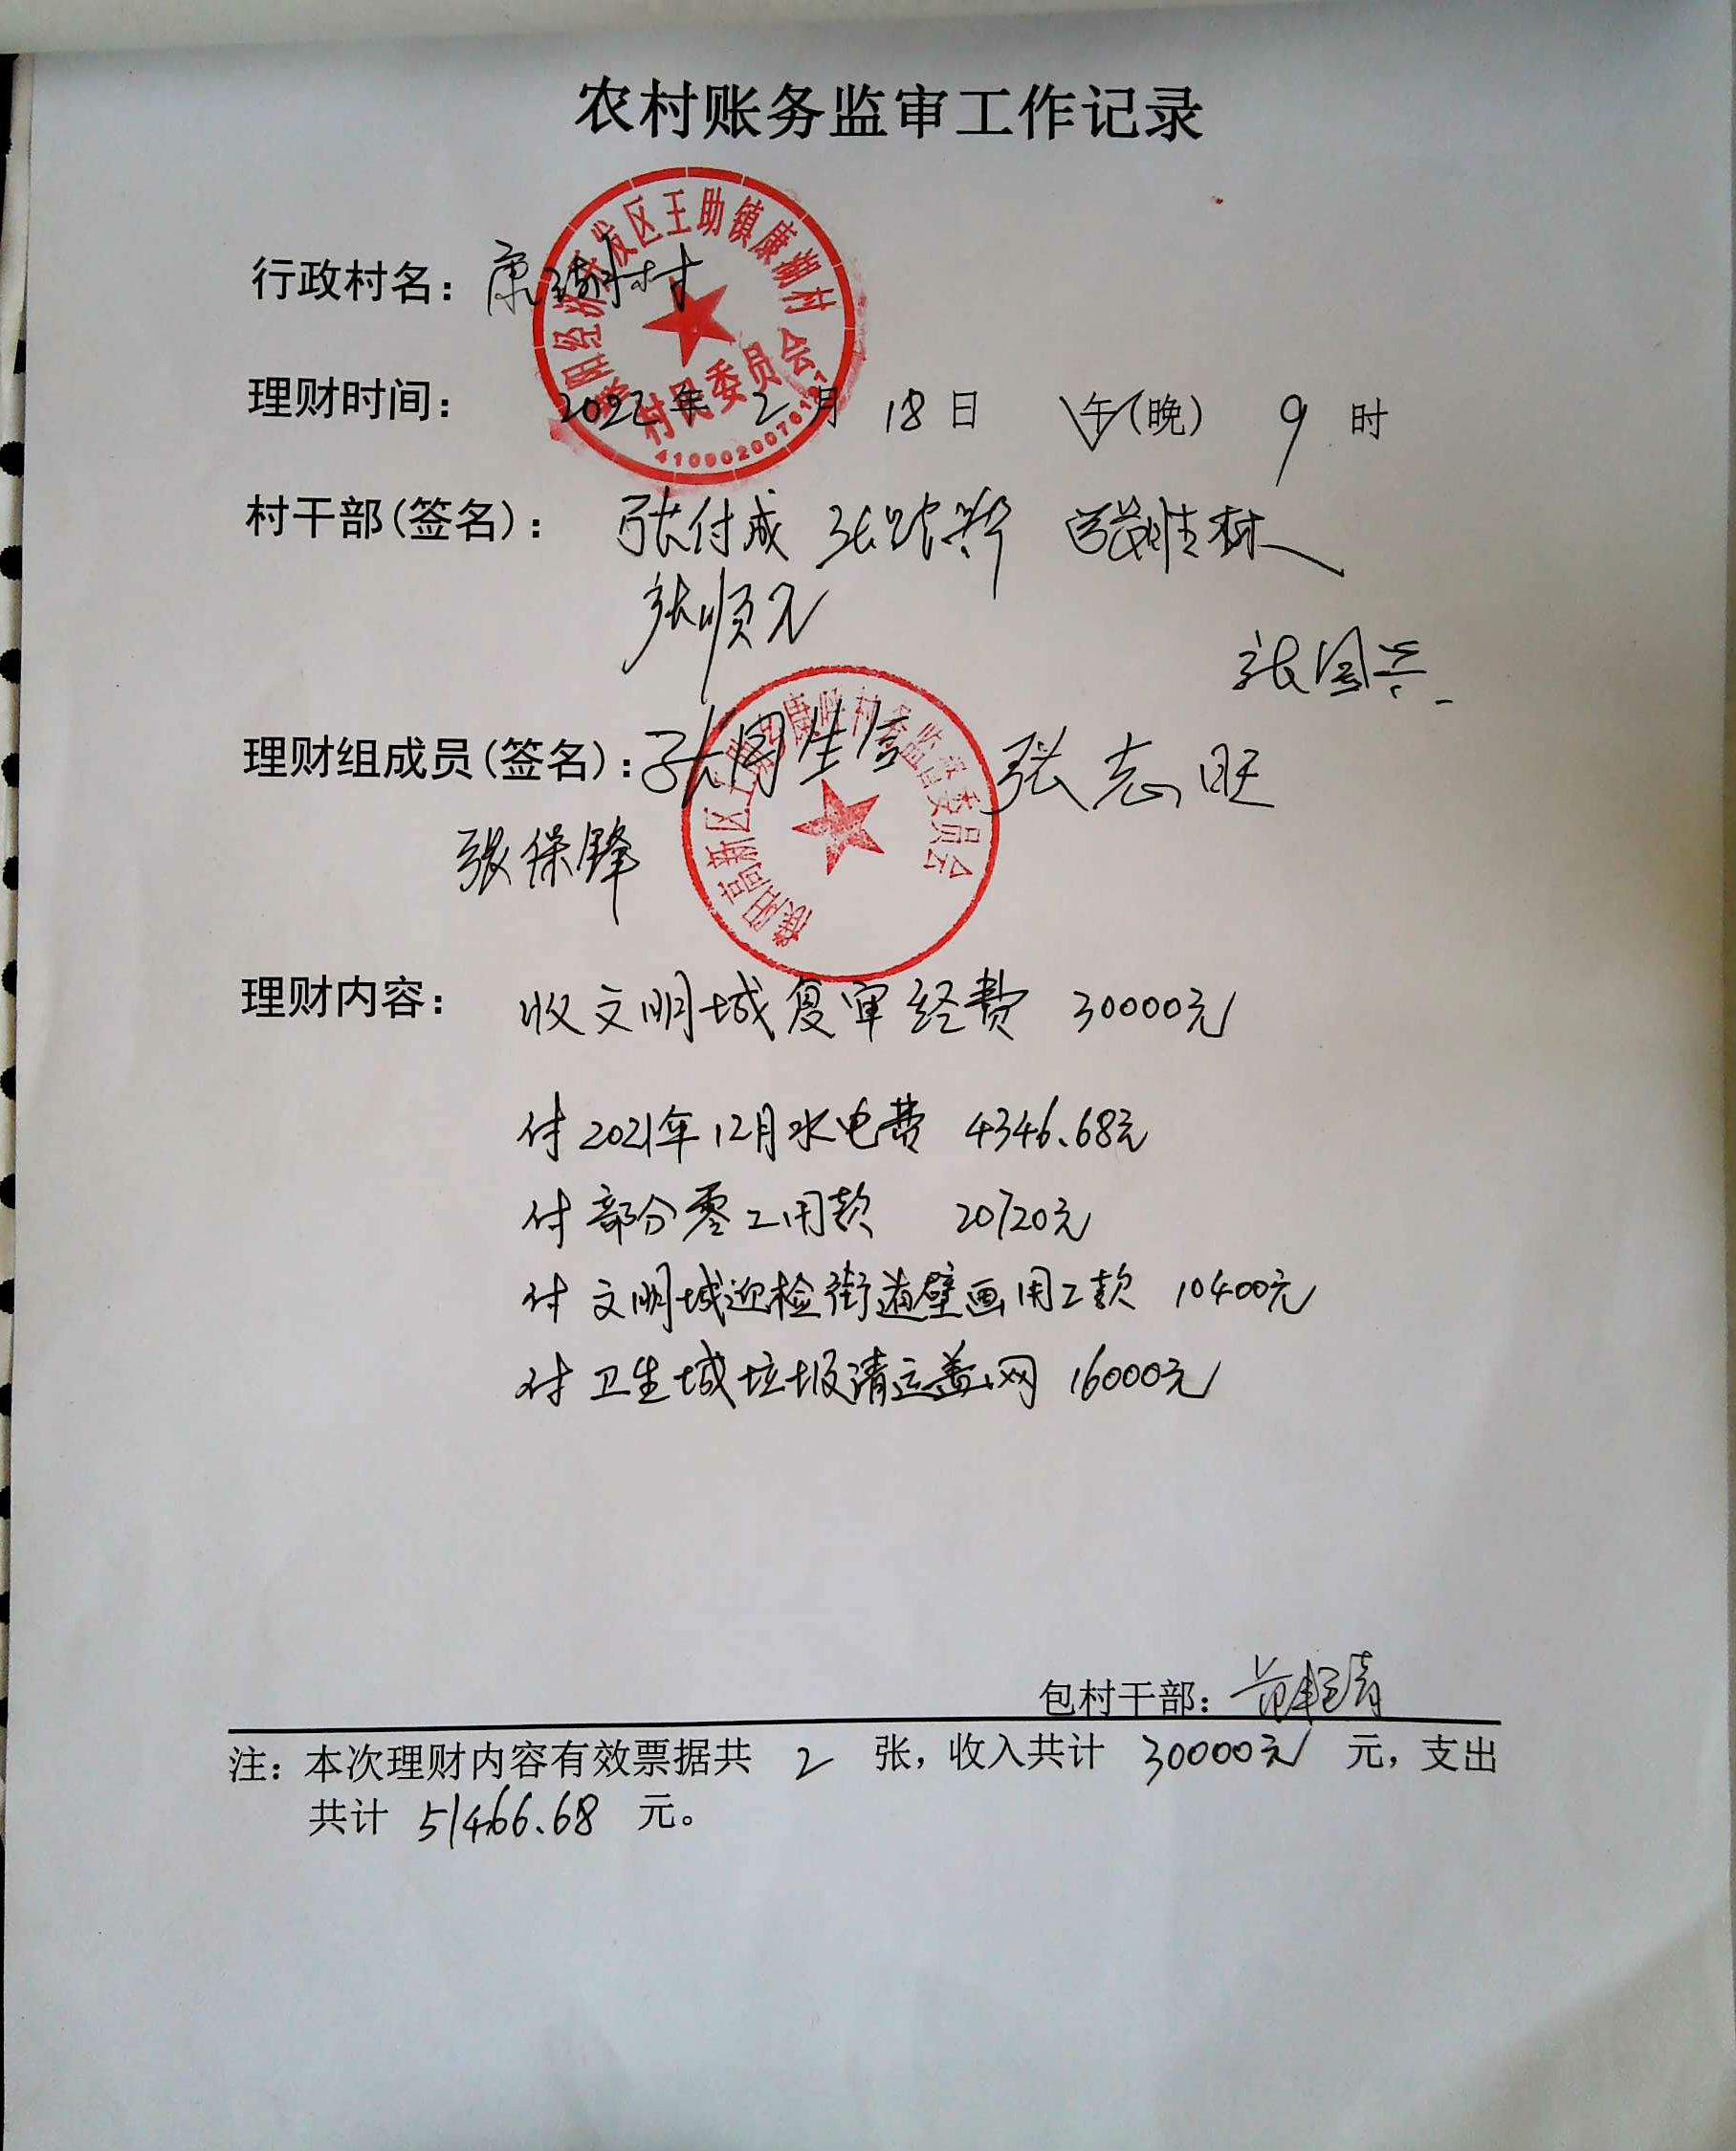 农村账务监审工作记录
濮阳经济开发区王助镇康瑚村
村民委员会
行政村名：康瑚村
理财时间： 2022年 2月 18日 午(晚) 9时
村干部(签名)： 张付成
张顺元
张国兴
理财组成员(签名)： 张志旺
张保锋
村务监督委员会
理财内容： 收文明城复审经费 30000元
付2021年12月水电费 4346.68元
付部分零工用款 20720元
付文明城迎检街道壁画用工款 10400元
付卫生城垃圾清运盖网 16000元
包村干部：
注：本次理财内容有效票据共 2 张，收入共计 30000元 元，支出
共计 51466.68 元。